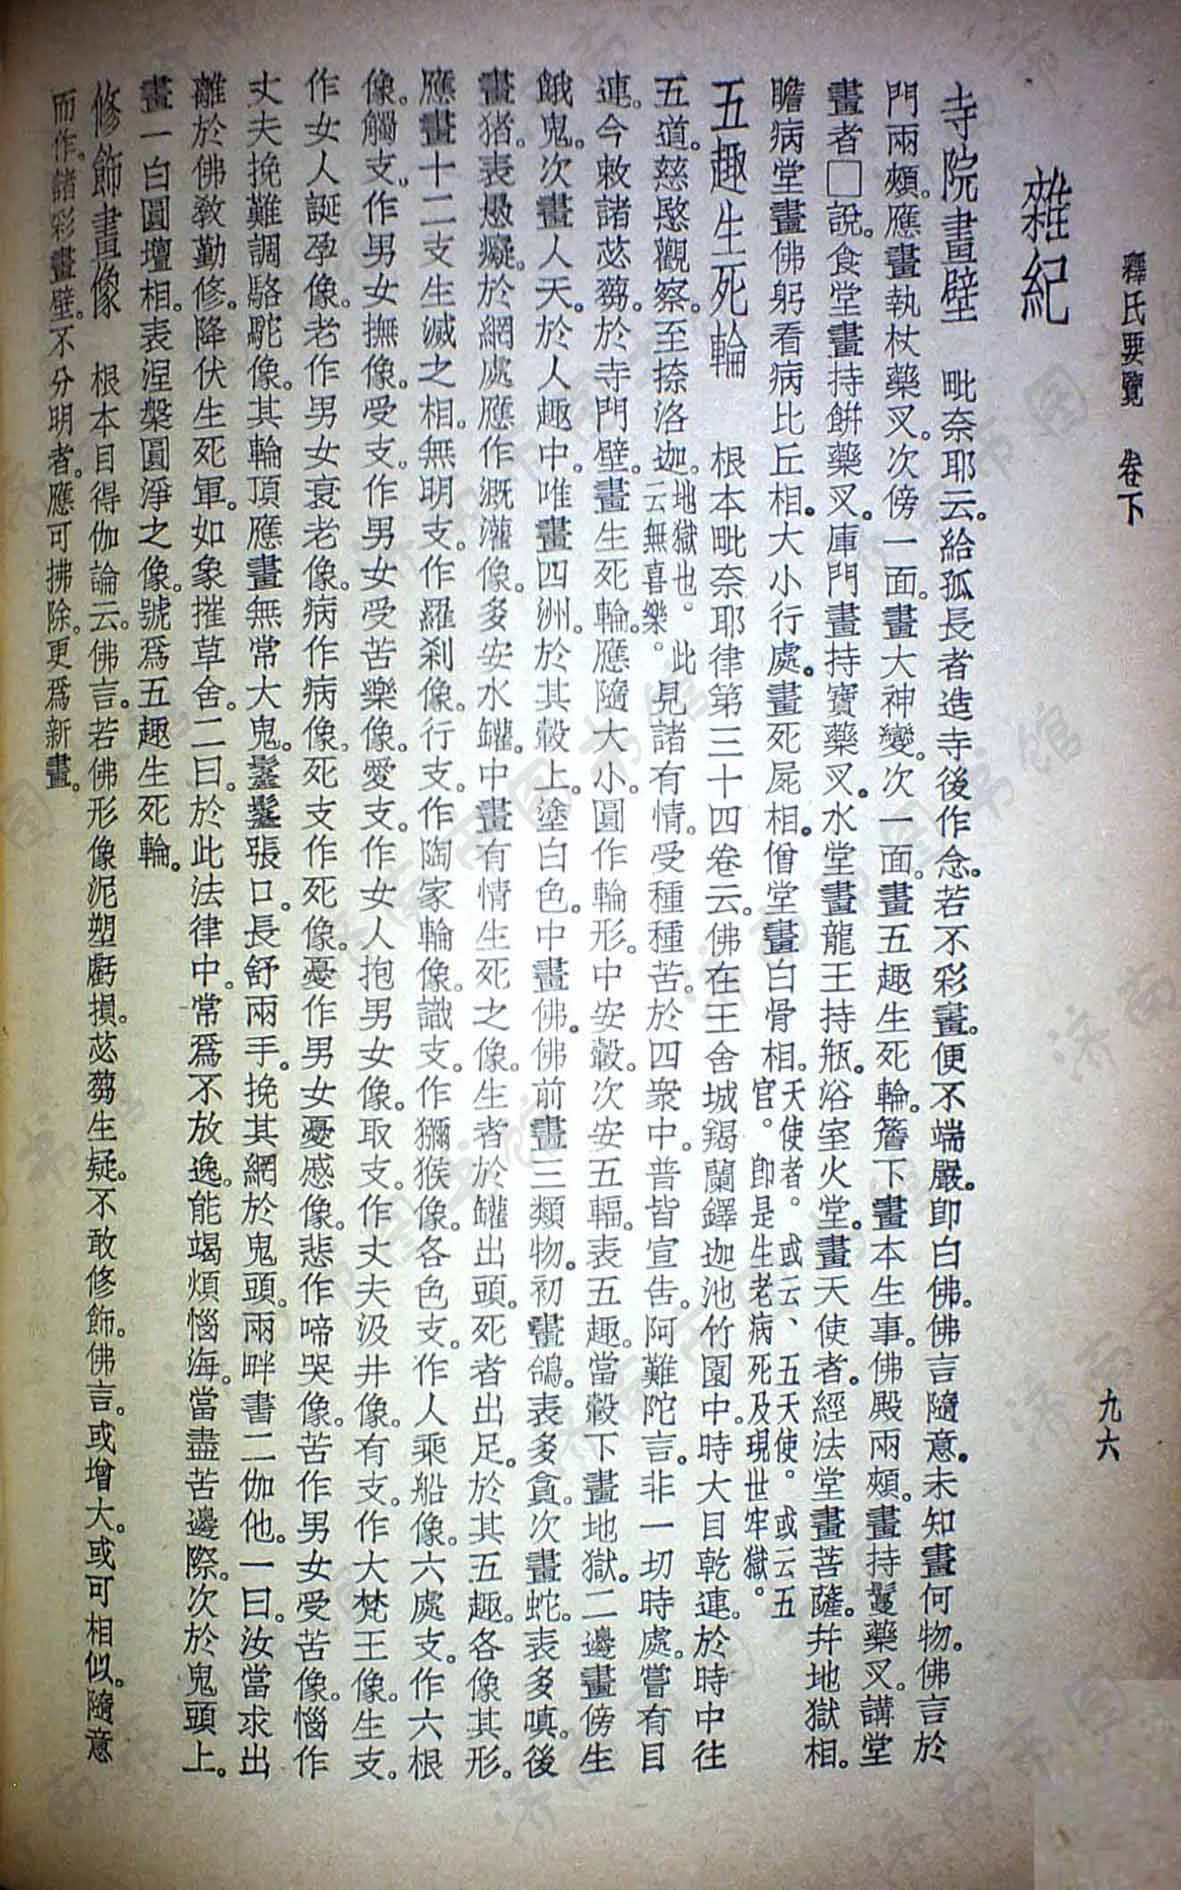 釋氏要覽　卷下　九六
雜紀
寺院畫壁　毗奈耶云。給孤長者造寺後作念。若不彩畫。便不端嚴。卽白佛。佛言隨意。未知畫何物。佛言於
門兩頰。應畫執杖藥叉。次傍一面。畫大神變。次一面。畫五趣生死輪。簷下畫本生事。佛殿兩頰。畫持鬘藥叉。講堂
畫者□說。食堂畫持餠藥叉。庫門畫持寶藥叉。水堂畫龍王持瓶。浴室火堂。畫天使者。經法堂畫菩薩。幷地獄相。
瞻病堂畫佛躬看病比丘相。大小行處。畫死屍相。僧堂畫白骨相。天使者。或云、五天使。或云五官。卽是生老病死及現世牢獄。
五趣生死輪　根本毗奈耶律第三十四卷云。佛在王舍城羯蘭鐸迦池竹園中。時大目乾連。於時中往
五道。慈愍觀察。至捺洛迦。地獄也。此云無喜樂。見諸有情。受種種苦。於四衆中。普皆宣告。阿難陀言。非一切時處。嘗有目
連。今敕諸苾蒭。於寺門壁。畫生死輪。應隨大小。圓作輪形。中安轂。次安五輻。表五趣。當轂下畫地獄。二邊畫傍生
餓鬼。次畫人天。於人趣中。唯畫四洲。於其轂上。塗白色。中畫佛。佛前畫三類物。初畫鴿。表多貪。次畫蛇。表多嗔。後
畫猪。表愚癡。於網處應作溉灌像。多安水罐。中畫有情生死之像。生者於罐出頭。死者出足。於其五趣。各像其形。
應畫十二支生滅之相。無明支。作羅刹像。行支。作陶家輪像。識支。作獼猴像。各色支。作人乘船像。六處支。作六根
像。觸支。作男女撫像。受支。作男女受苦樂像。愛支。作女人抱男女像。取支。作丈夫汲井像。有支。作大梵王像。生支。
作女人誕孕像。老作男女衰老像。病作病像。死支作死像。憂作男女憂慼像。悲作啼哭像。苦作男女受苦像。惱作
丈夫挽難調駱駝像。其輪頂應畫無常大鬼。鬔鬆張口。長舒兩手。挽其網於鬼頭。兩畔書二伽他。一曰。汝當求出
離於佛敎勤修。降伏生死軍。如象摧草舍。二曰。於此法律中。常爲不放逸。能竭煩惱海。當盡苦邊際。次於鬼頭上。
畫一白圓壇相。表涅槃圓淨之像。號爲五趣生死輪。
修飾畫像　根本目得伽論云。佛言。若佛形像泥塑虧損。苾蒭生疑。不敢修飾。佛言。或增大。或可相似。隨意
而作。諸彩畫壁。不分明者。應可拂除。更爲新畫。